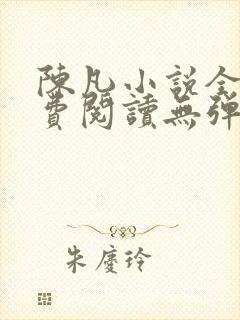 陳凡小說全
費閱讀無彈
朱慶玲